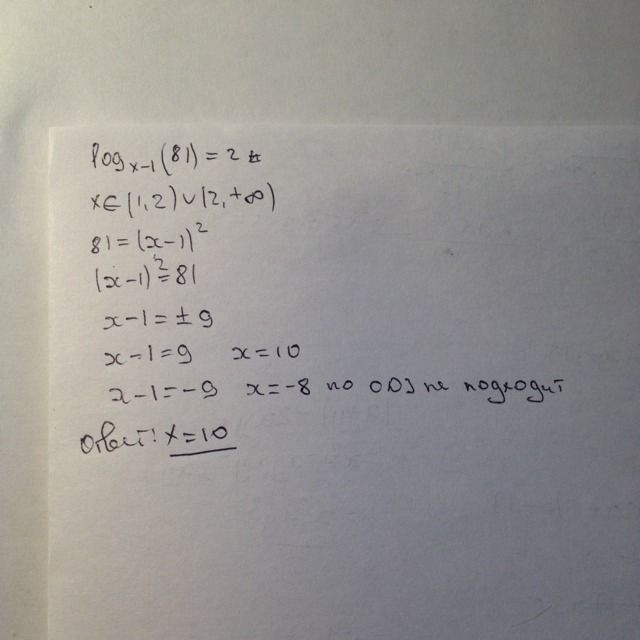 log_{x-1}(81) = 2
x∈(1,2)∪(2,+∞)
81=(x-1)²
(x-1)²=81
x-1=±9
x-1=9 x=10
x-1=-9 x=-8 по ОДЗ не подходит
Ответ: x=10